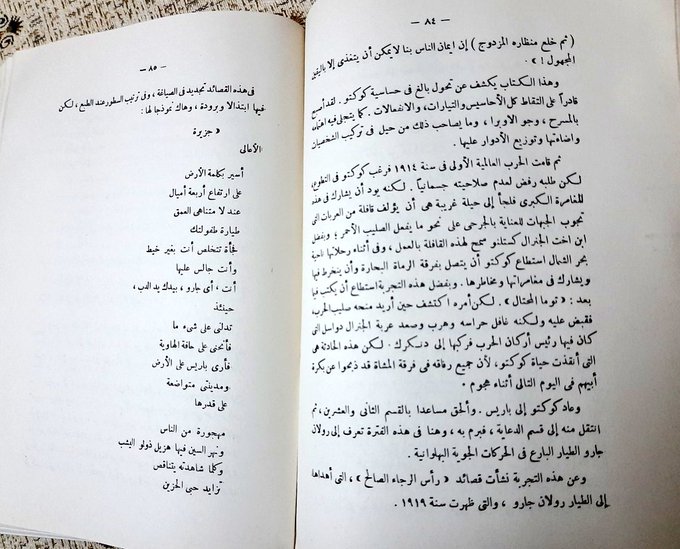 — ٨٤ —
( ثم خلع منظاره المزدوج ) إن ايمان الناس بنا لا يمكن أن يتغذى إلا باليقين
المجهول ! » .
وهذا الكتاب يكشف عن تحول بالغ فى حساسية كوكتو . لقد أصبح
قادراً على التقاط كل الأحاسيس والتيارات ، والانفعالات . كما يتجلى فيه اهتمامه
بالمسرح ، وجو الاوبرا ، وما يصاحب ذلك من حيل فى تركيب الشخصيات
واضاءتها وتوزيع الأدوار عليها .
ثم قامت الحرب العالمية الأولى فى سنة ١٩١٤ فرغب كوكتو فى التطوع ،
لكن طلبه رفض لعدم صلاحيته جسمانياً . لكنه يود أن يشارك فى هذه
المغامرة الكبرى فلجأ إلى حيلة غريبة هى أن يؤلف قافلة من العربات التى
تجوب الجبهات للعناية بالجرحى على نحو ما يفعل الصليب الأحمر ، وبفضل
ابن اخت الجنرال كستلنو سمح لهذه القافلة بالعمل ، وفى أثناء رحلاتها ناحية
بحر الشمال استطاع كوكتو أن يتصل بفرقة الرماة البحارة وأن ينخرط فيها
ويشارك فى مغامراتها ومخاطرها . وبفضل هذه التجربة استطاع أن يكتب فيما
بعد : « توما المحتال » . لكن أمره اكتشف حين أريد منحه صليب الحرب ،
فقبض عليه ولكنه غافل حراسه وهرب وصعد عربة الجنرال دواسل التى
كان فيها رئيس أركان الحرب فركبها إلى دنسكرك . لكن هذه الحادثة هى
التى أنقذت حياة كوكتو ، لأن جميع رفاقه فى فرقة المشاة قد ذبحوا عن بكرة
أبيهم فى اليوم التالى أثناء هجوم .
وعاد كوكتو إلى باريس . وألحق مساعدا بالقسم الثانى والعشرين ، ثم
انتقل منه إلى قسم الدعاية ، فبرم به ، وهنا فى هذه الفترة تعرف إلى رولان
جارو الطيار البارع فى الحركات الجوية البهلوانية .
وعن هذه التجربة نشأت قصائد « رأس الرجاء الصالح » ، التى أهداها
إلى الطيار رولان جارو ، والتى ظهرت سنة ١٩١٩ .
— ٨٥ —
فى هذه القصائد تجديد فى الصياغة ، وفى ترتيب السطور عند الطبع ، لكن
فيها ابتذالا وبرودة ، وهاك نموذجا لها :
« جزيرة
الأعالى
أسير بكلمة الأرض
على ارتفاع أربعة أميال
عند لا متناهى العمق
طيارة طفولتك
فجأة تتخلص أنت بغير خيط
وأنت جالس عليها
أنت ، أى جارو ، بيدك يد الدب ،
حينئذ
تدلنى على شىء ما
فأنحنى على حافة الهاوية
فأرى باريس على الأرض
ومدينتى متواضعة
على قدرها
مهجورة من الناس
ونهر السين فيها هزيل ذو لو اليشب
وكلما شاهدته يتناقص
تزايد حبى الحزين